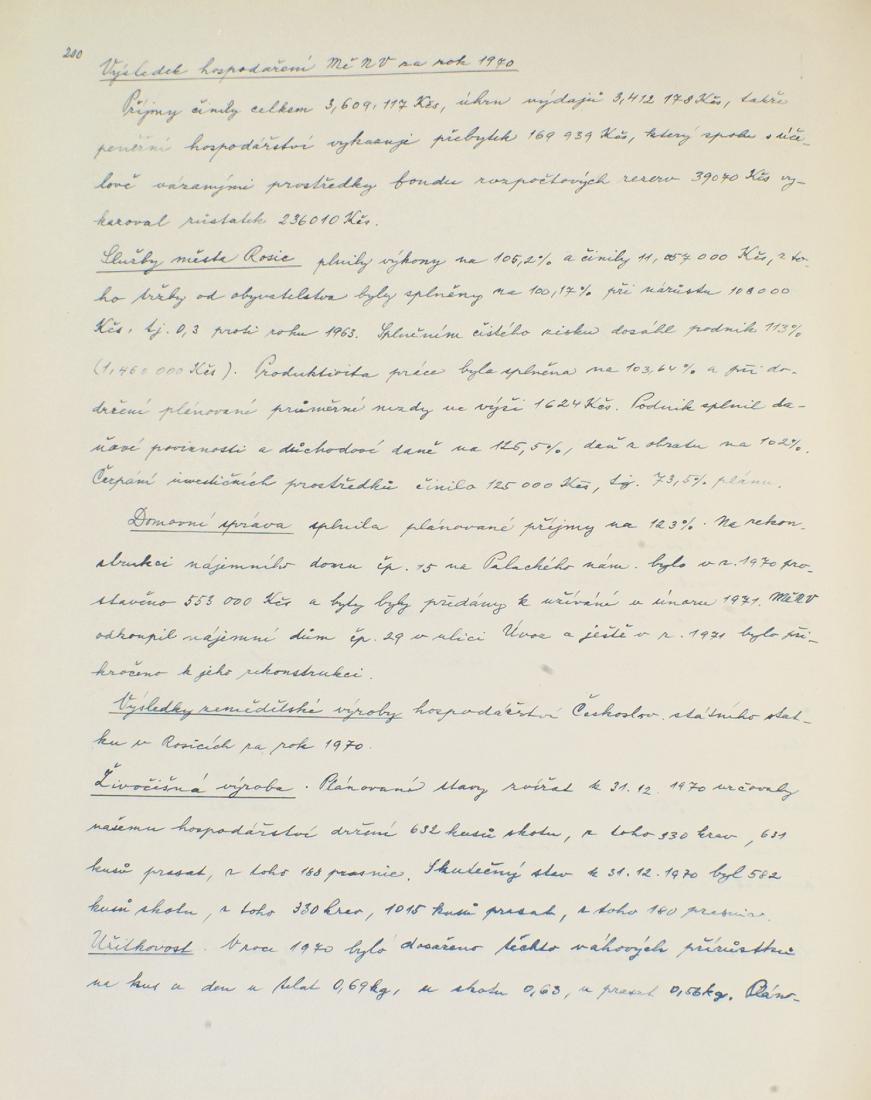 200
Výsledek hospodaření Mě NV za rok 1970
Příjmy činily celkem 3,609.117 Kčs, úhrn výdajů 3,412 178 Kčs, takže
peněžní hospodářství vykazuje přebytek 169 939 Kčs, který spolu s úče-
lově vázanými prostředky fondu rozpočtových rezerv 39070 Kčs vy-
kazoval zůstatek 236010 Kčs.
Služby města Rosic plnily výkony na 105,2% a činily 11,057 000 Kčs, z to-
ho tržby od obyvatelstva byly splněny na 100,17% při nárůstu 108000
Kčs, tj. 0,3 proti roku 1963. Splněním čistého zisku dosáhl podnik 113%
(1,460 000 Kčs). Produktivita práce byla splněna na 103,64% a při do-
držení plánované průměrné mzdy ve výši 1624 Kčs. Podnik splnil da-
ňové povinnosti a důchodové daně na 125,5%, daň z obratu na 102%.
Čerpání investičních prostředků činilo 125 000 Kčs, tj. 73,5% plánu.
Domovní správa splnila plánované příjmy na 123%. Na rekon-
strukci nájemního domu čp. 15 na Palackého nám. bylo v r. 1970 pro-
stavěno 553 000 Kčs a byty byly předány k užívání v únoru 1971. MěNV
odkoupil nájemní dům čp. 29 v ulici Úvoz a ještě v r. 1971 bylo při-
kročeno k jeho rekonstrukci.
Výsledky zemědělské výroby hospodářství Českoslov. státního stat-
ku v Rosicích za rok 1970.
Živočišná výroba. Plánované stavy zvířat k 31.12. 1970 určovaly
našemu hospodářství držení 632 kusů skotu, z toho 330 krav, 631
kusů prasat, z toho 188 prasnic. Skutečný stav k 31.12.1970 byl 582
kusů skotu, z toho 330 krav, 1015 kusů prasat, z toho 180 prasnic.
Užitkovost. V roce 1970 bylo dosaženo těchto váhových přírůstků
na kus a den u telat 0,69kg, u skotu 0,63, u prasat 0,56kg. Pláno-